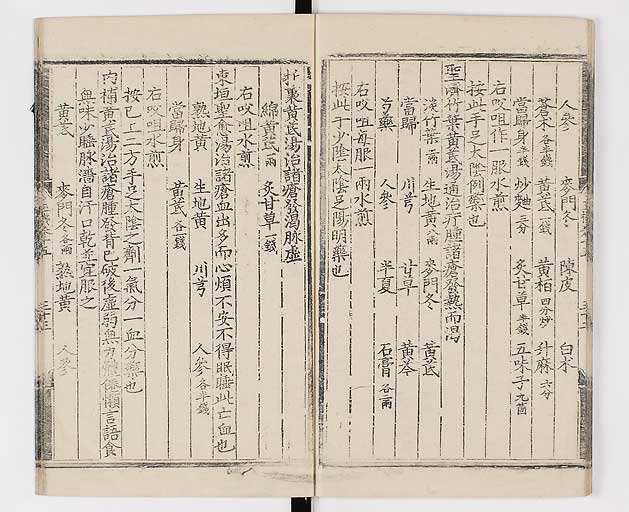 人參 麥門冬 陳皮 白朮
蒼朮各半錢 黃芪一錢 黃柏四分炒 升麻六分
當歸身半錢 炒麯三分 炙甘草半錢 五味子九箇
右㕮咀作一服水煎
按此手足太陰例藥也
聖濟竹葉黃芪湯通治疔腫諸瘡發熱而渴
淡竹葉二兩 生地黃八兩 麥門冬 黃芪
當歸 川芎 甘草 黃芩
芍藥 人參 半夏 石膏各二兩
右㕮咀每服一兩水煎
按此手少陰太陰足陽明藥也
托裏黃芪湯治諸瘡發渴脉虛
綿黃芪二兩 炙甘草一錢
右㕮咀水煎
東垣聖愈湯治諸瘡血出多而心煩不安不得眠睡此亡血也
熟地黃 生地黃 川芎 人參各半錢
當歸身 黃芪各一錢
右㕮咀水煎
按已上二方手足太陰之劑一氣分一血分藥也
內補黃芪湯治諸瘡腫發背已破後虛弱無力體倦懶言語食
無味少睡脉濇自汗口乾並宜服之
黃芪 麥門冬各二兩 熟地黃 人參